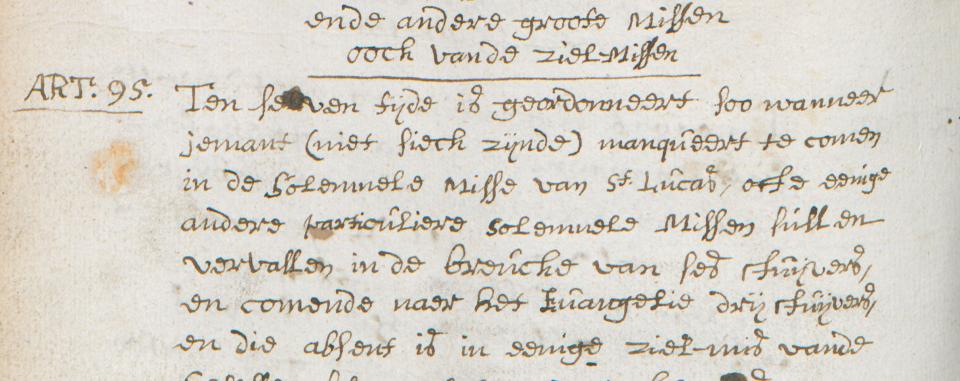 ende andere groote Missen
ooch vande ziel-Missen
ART: 95. Ten selven tijde is geordonneert soo wanneer
jemant (niet sieck zijnde) manqueert te comen
in de Solemnele Misse van St. Lucas, ofte eenige
andere particuliere solemnele Missen sullen
vervallen in de breucke van ses stuijvers,
en comende naer het Euangelie drij stuijvers,
en die absent is in eenige ziel-mis vande